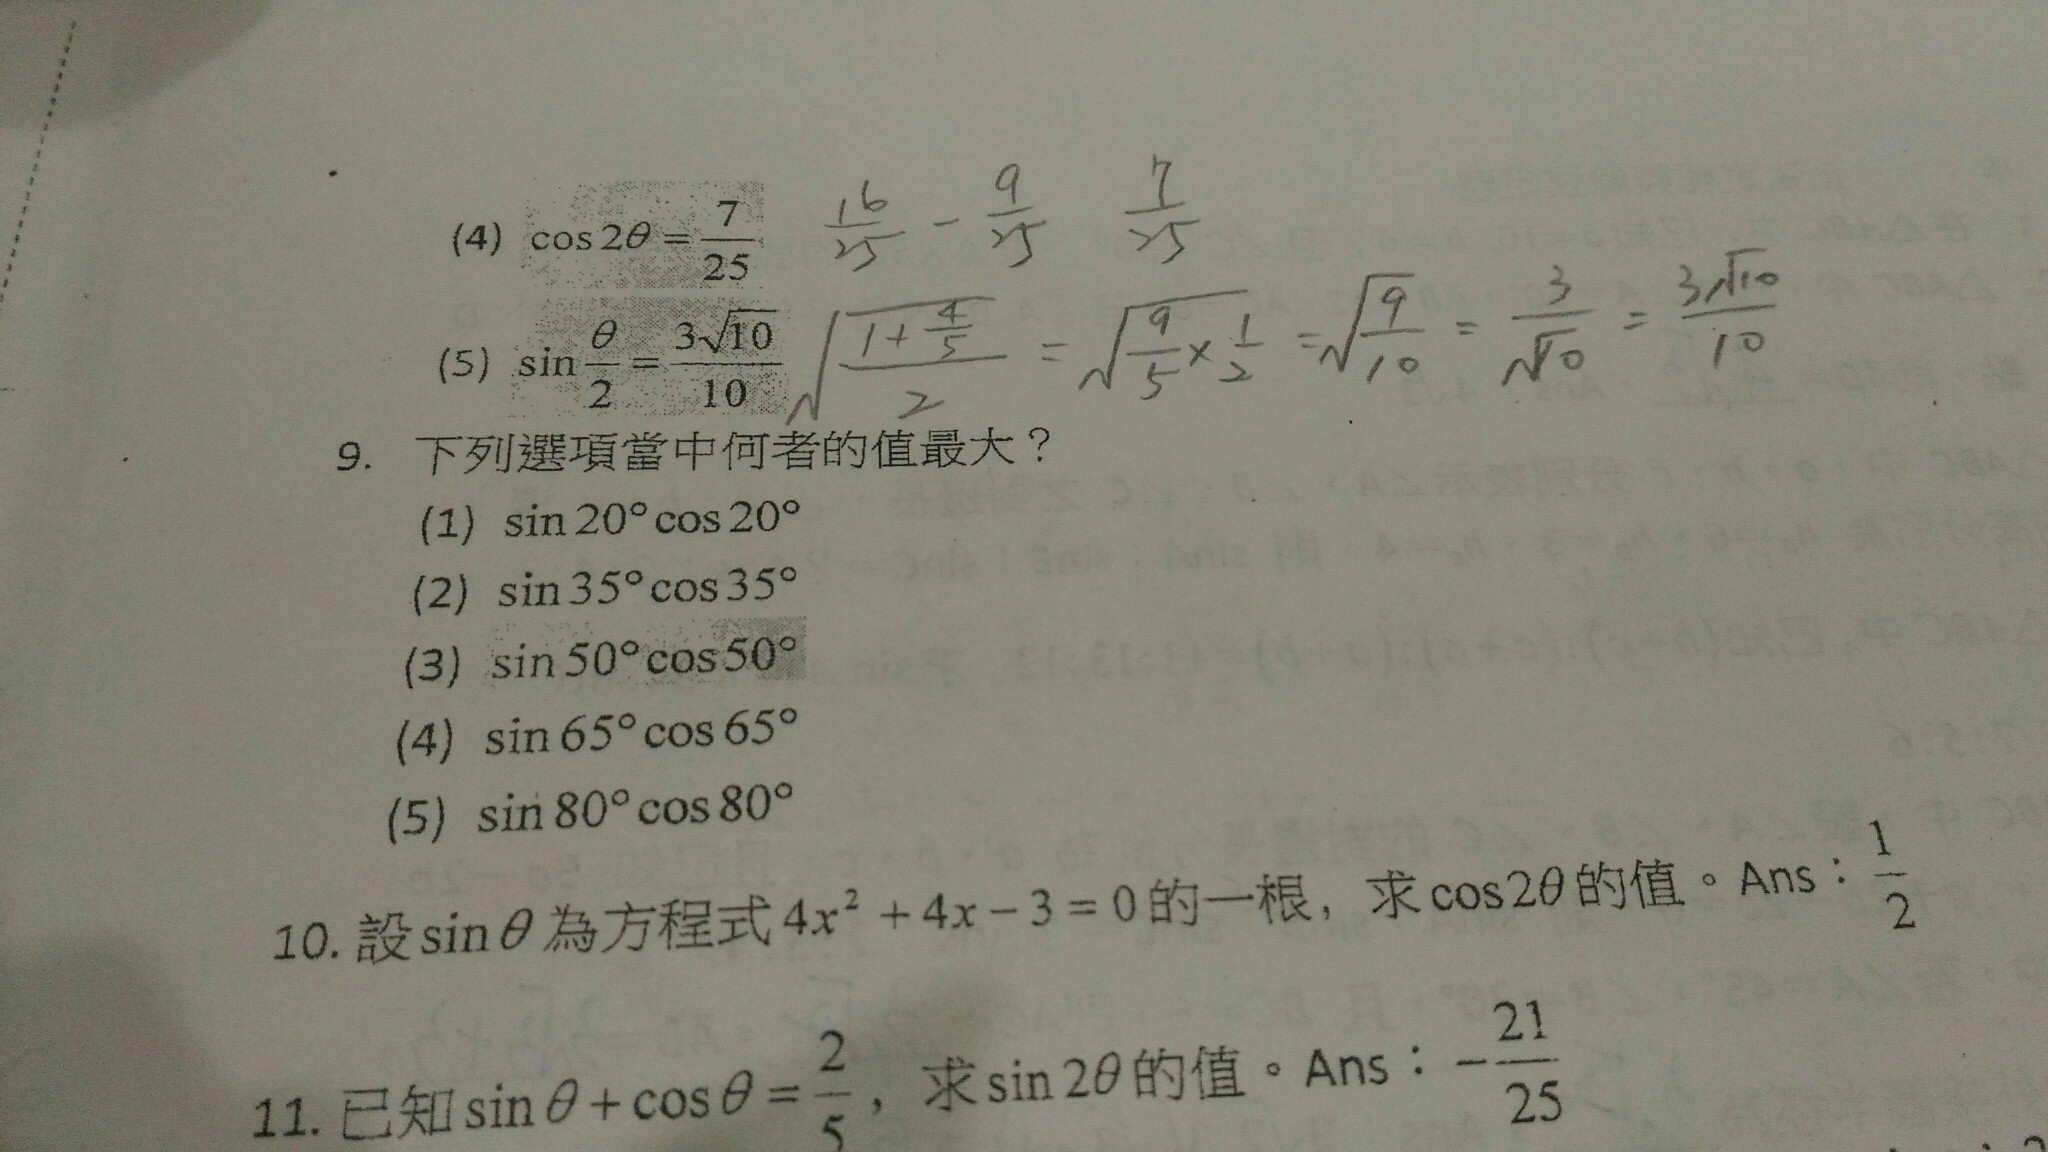 (4) cos2θ = 7/25 16/25 - 9/25 7/25
(5) sin θ/2 = 3√10/10 √((1+4/5)/2) = √(9/5 × 1/2) = √(9/10) = 3/√10 = 3√10/10
9. 下列選項當中何者的值最大？
(1) sin20°cos20°
(2) sin35°cos35°
(3) sin50°cos50°
(4) sin65°cos65°
(5) sin80°cos80°
10. 設sinθ為方程式4x² + 4x − 3 = 0的一根，求cos2θ的值。Ans：1/2
11. 已知sinθ + cosθ = 2/5，求sin2θ的值。Ans：−21/25